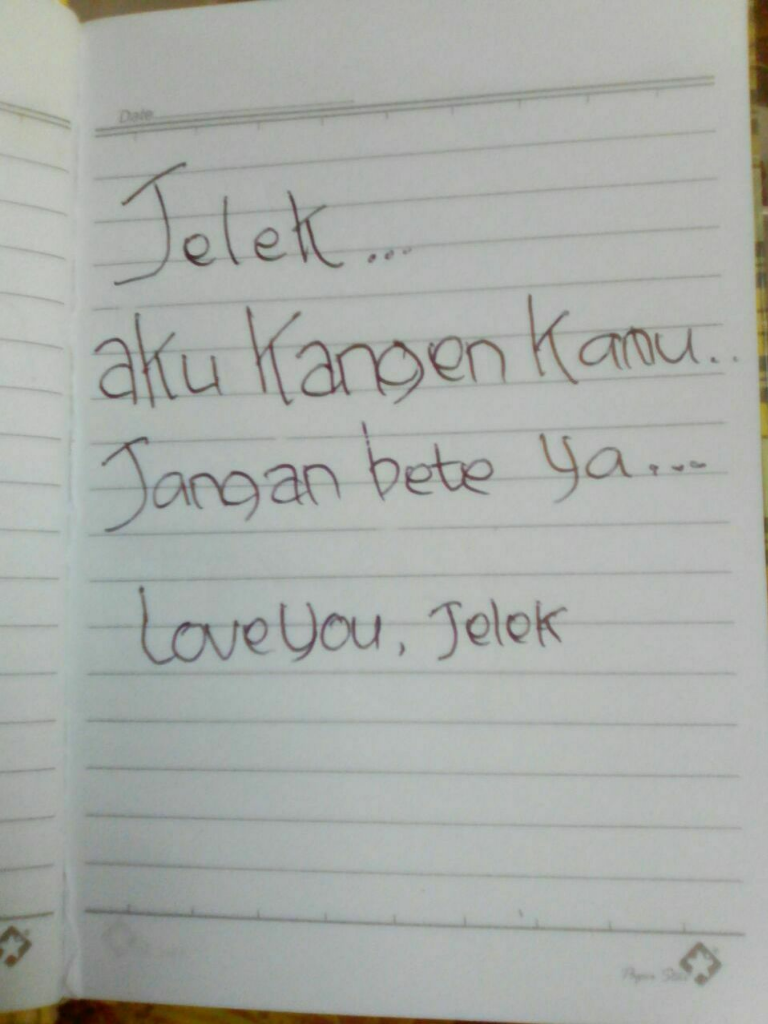 Date
Jelek...
aku Kangen Kamu..
Jangan bete ya...
Love you, Jelek